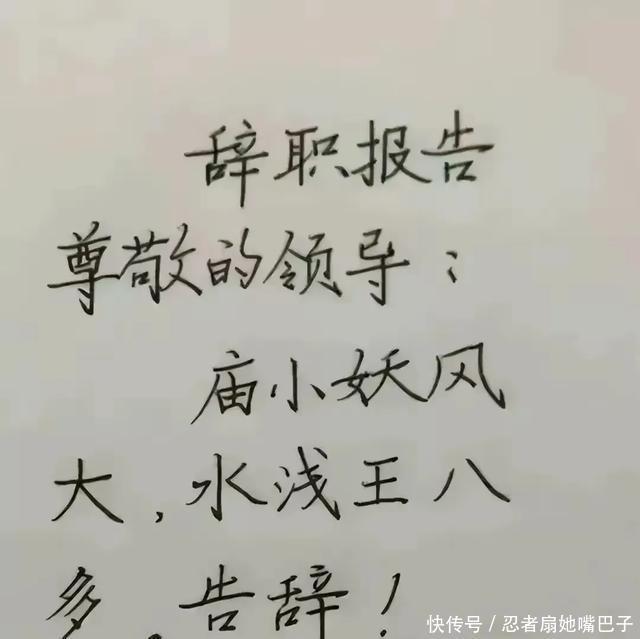 辞职报告
尊敬的领导：
庙小妖风
大，水浅王八
多，告辞！
快传号／忍者扇她嘴巴子